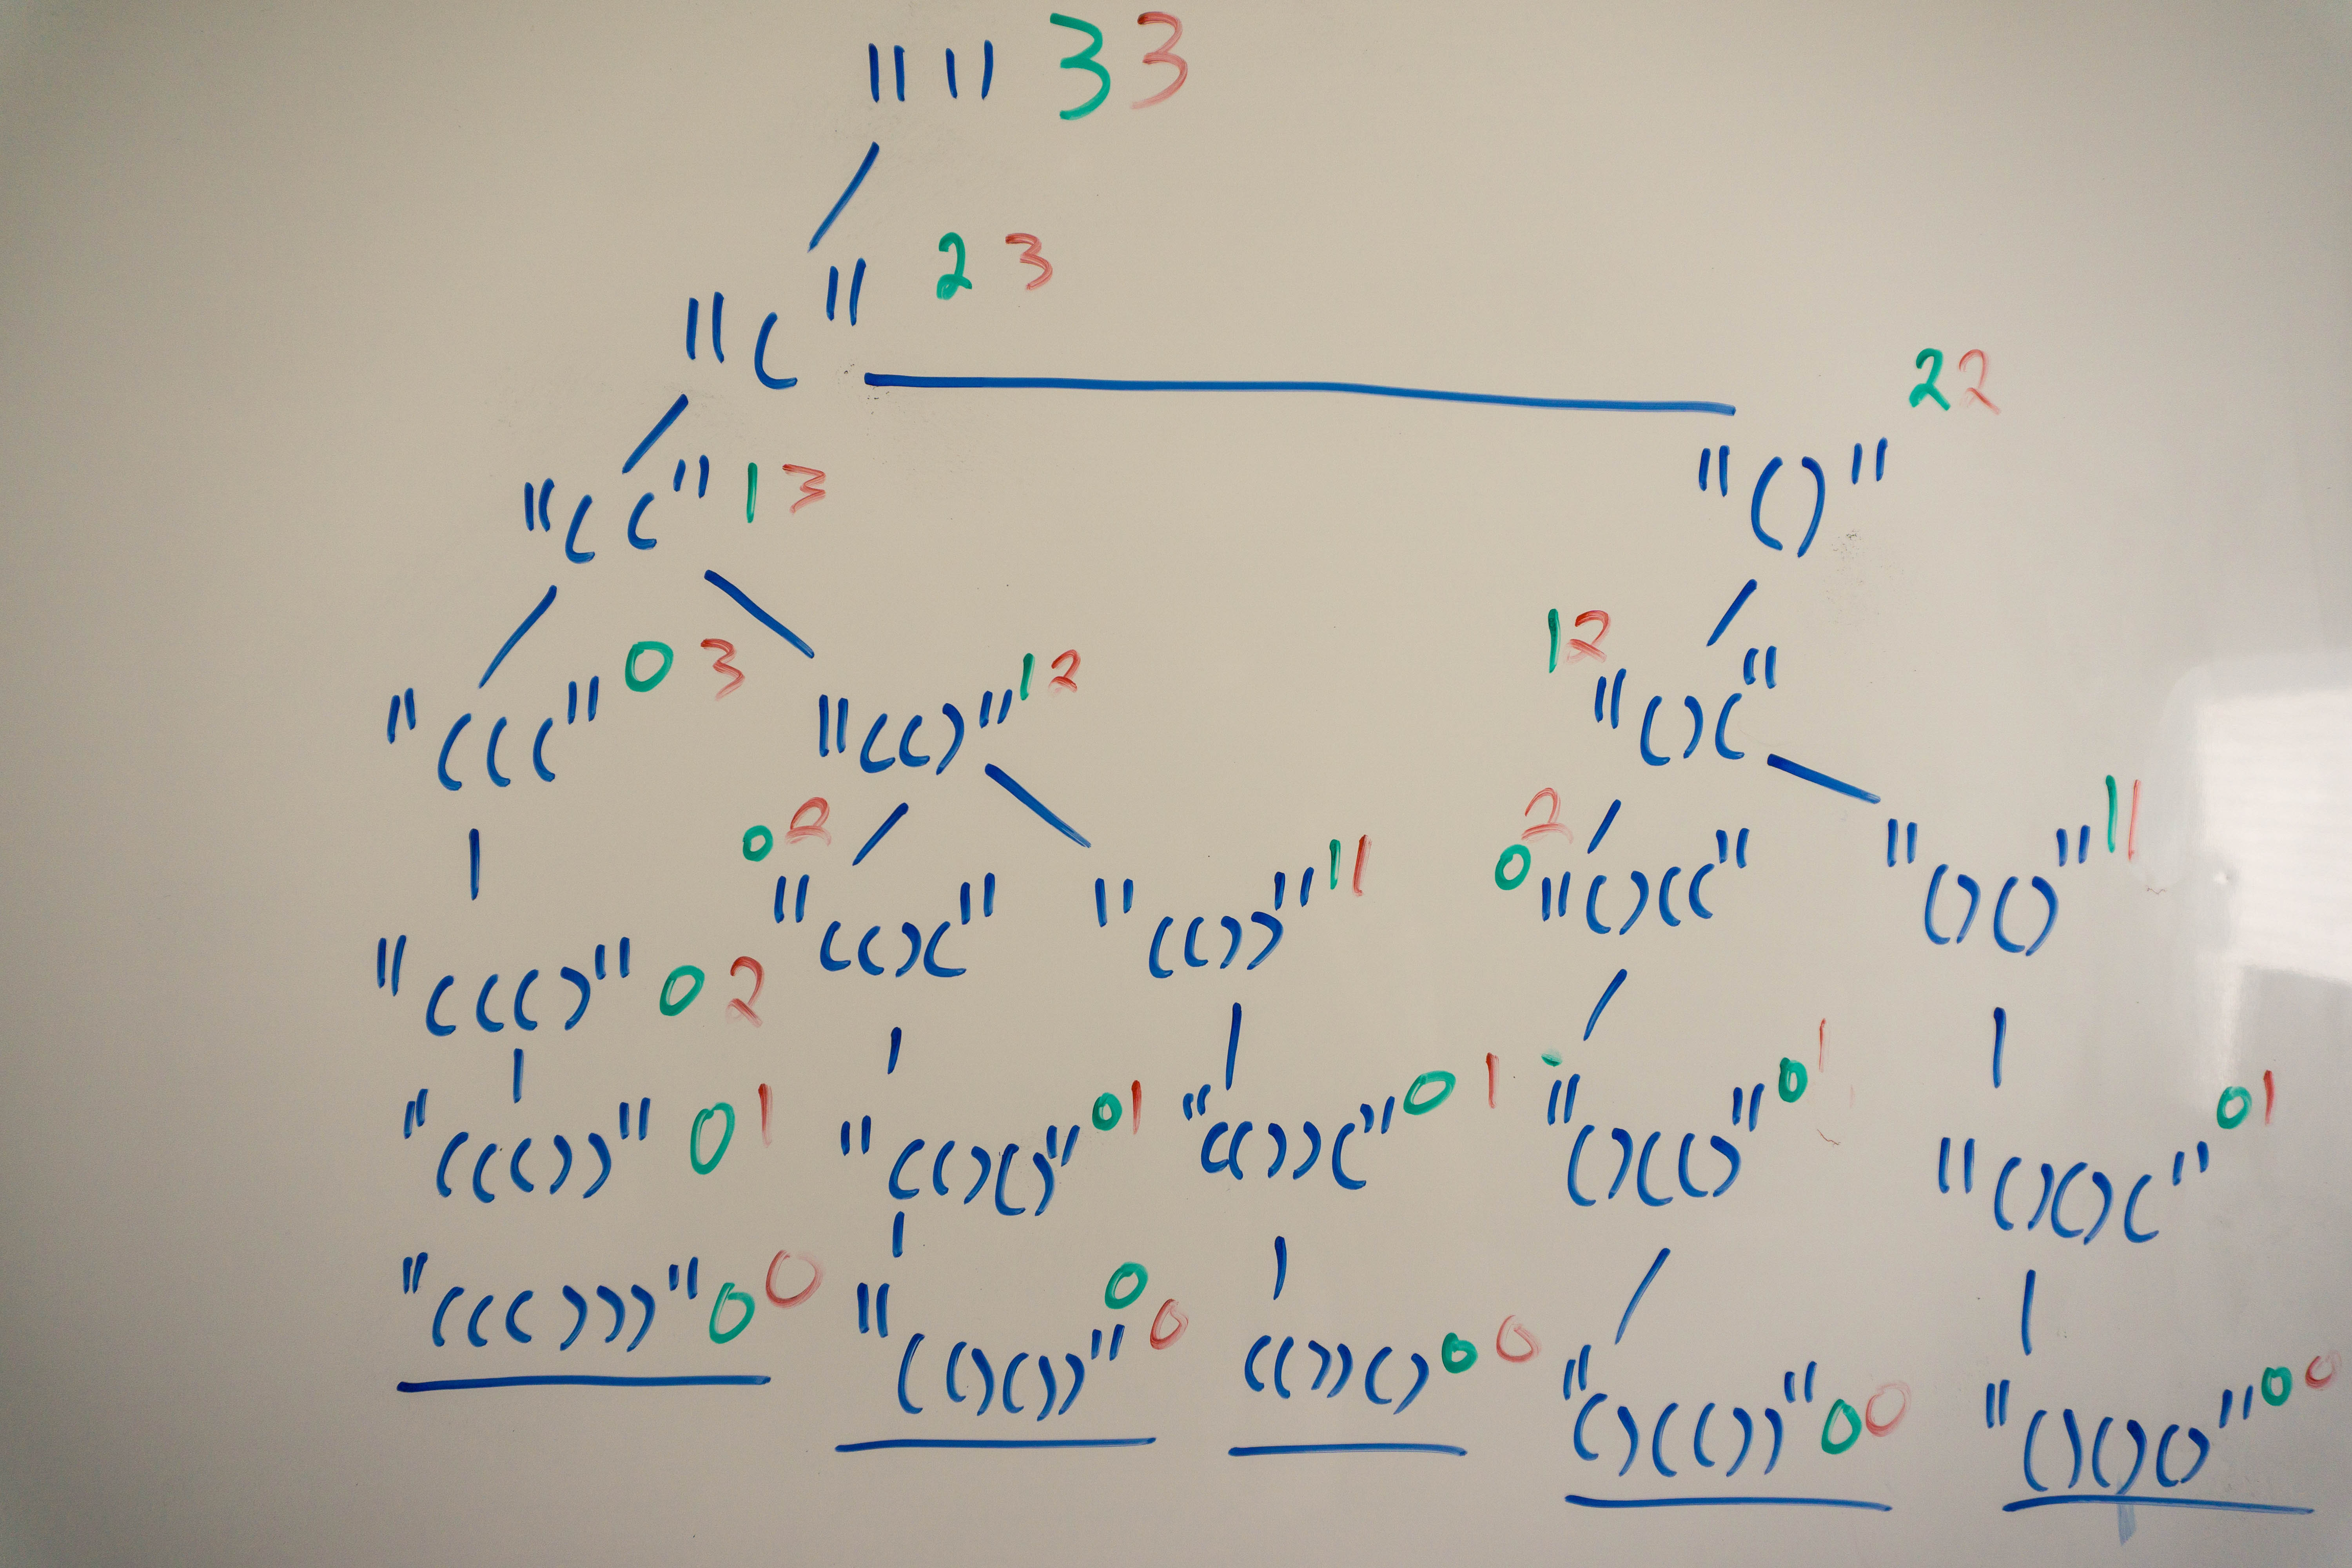 "" "" 33
"(" 23
"()" 22
"((" 13
"(((" 03
"(()" 12
12 "()("
02 "(()("
"(())" 11
02 "()(("
"()()" 11
"((()" 02
"((())" 01
"(()()" 01
"(())(" 01
"()(()" 01
"()()(" 01
"((()))" 00
"(()())" 00
(())() 00
"()(())" 00
"()()()" 00